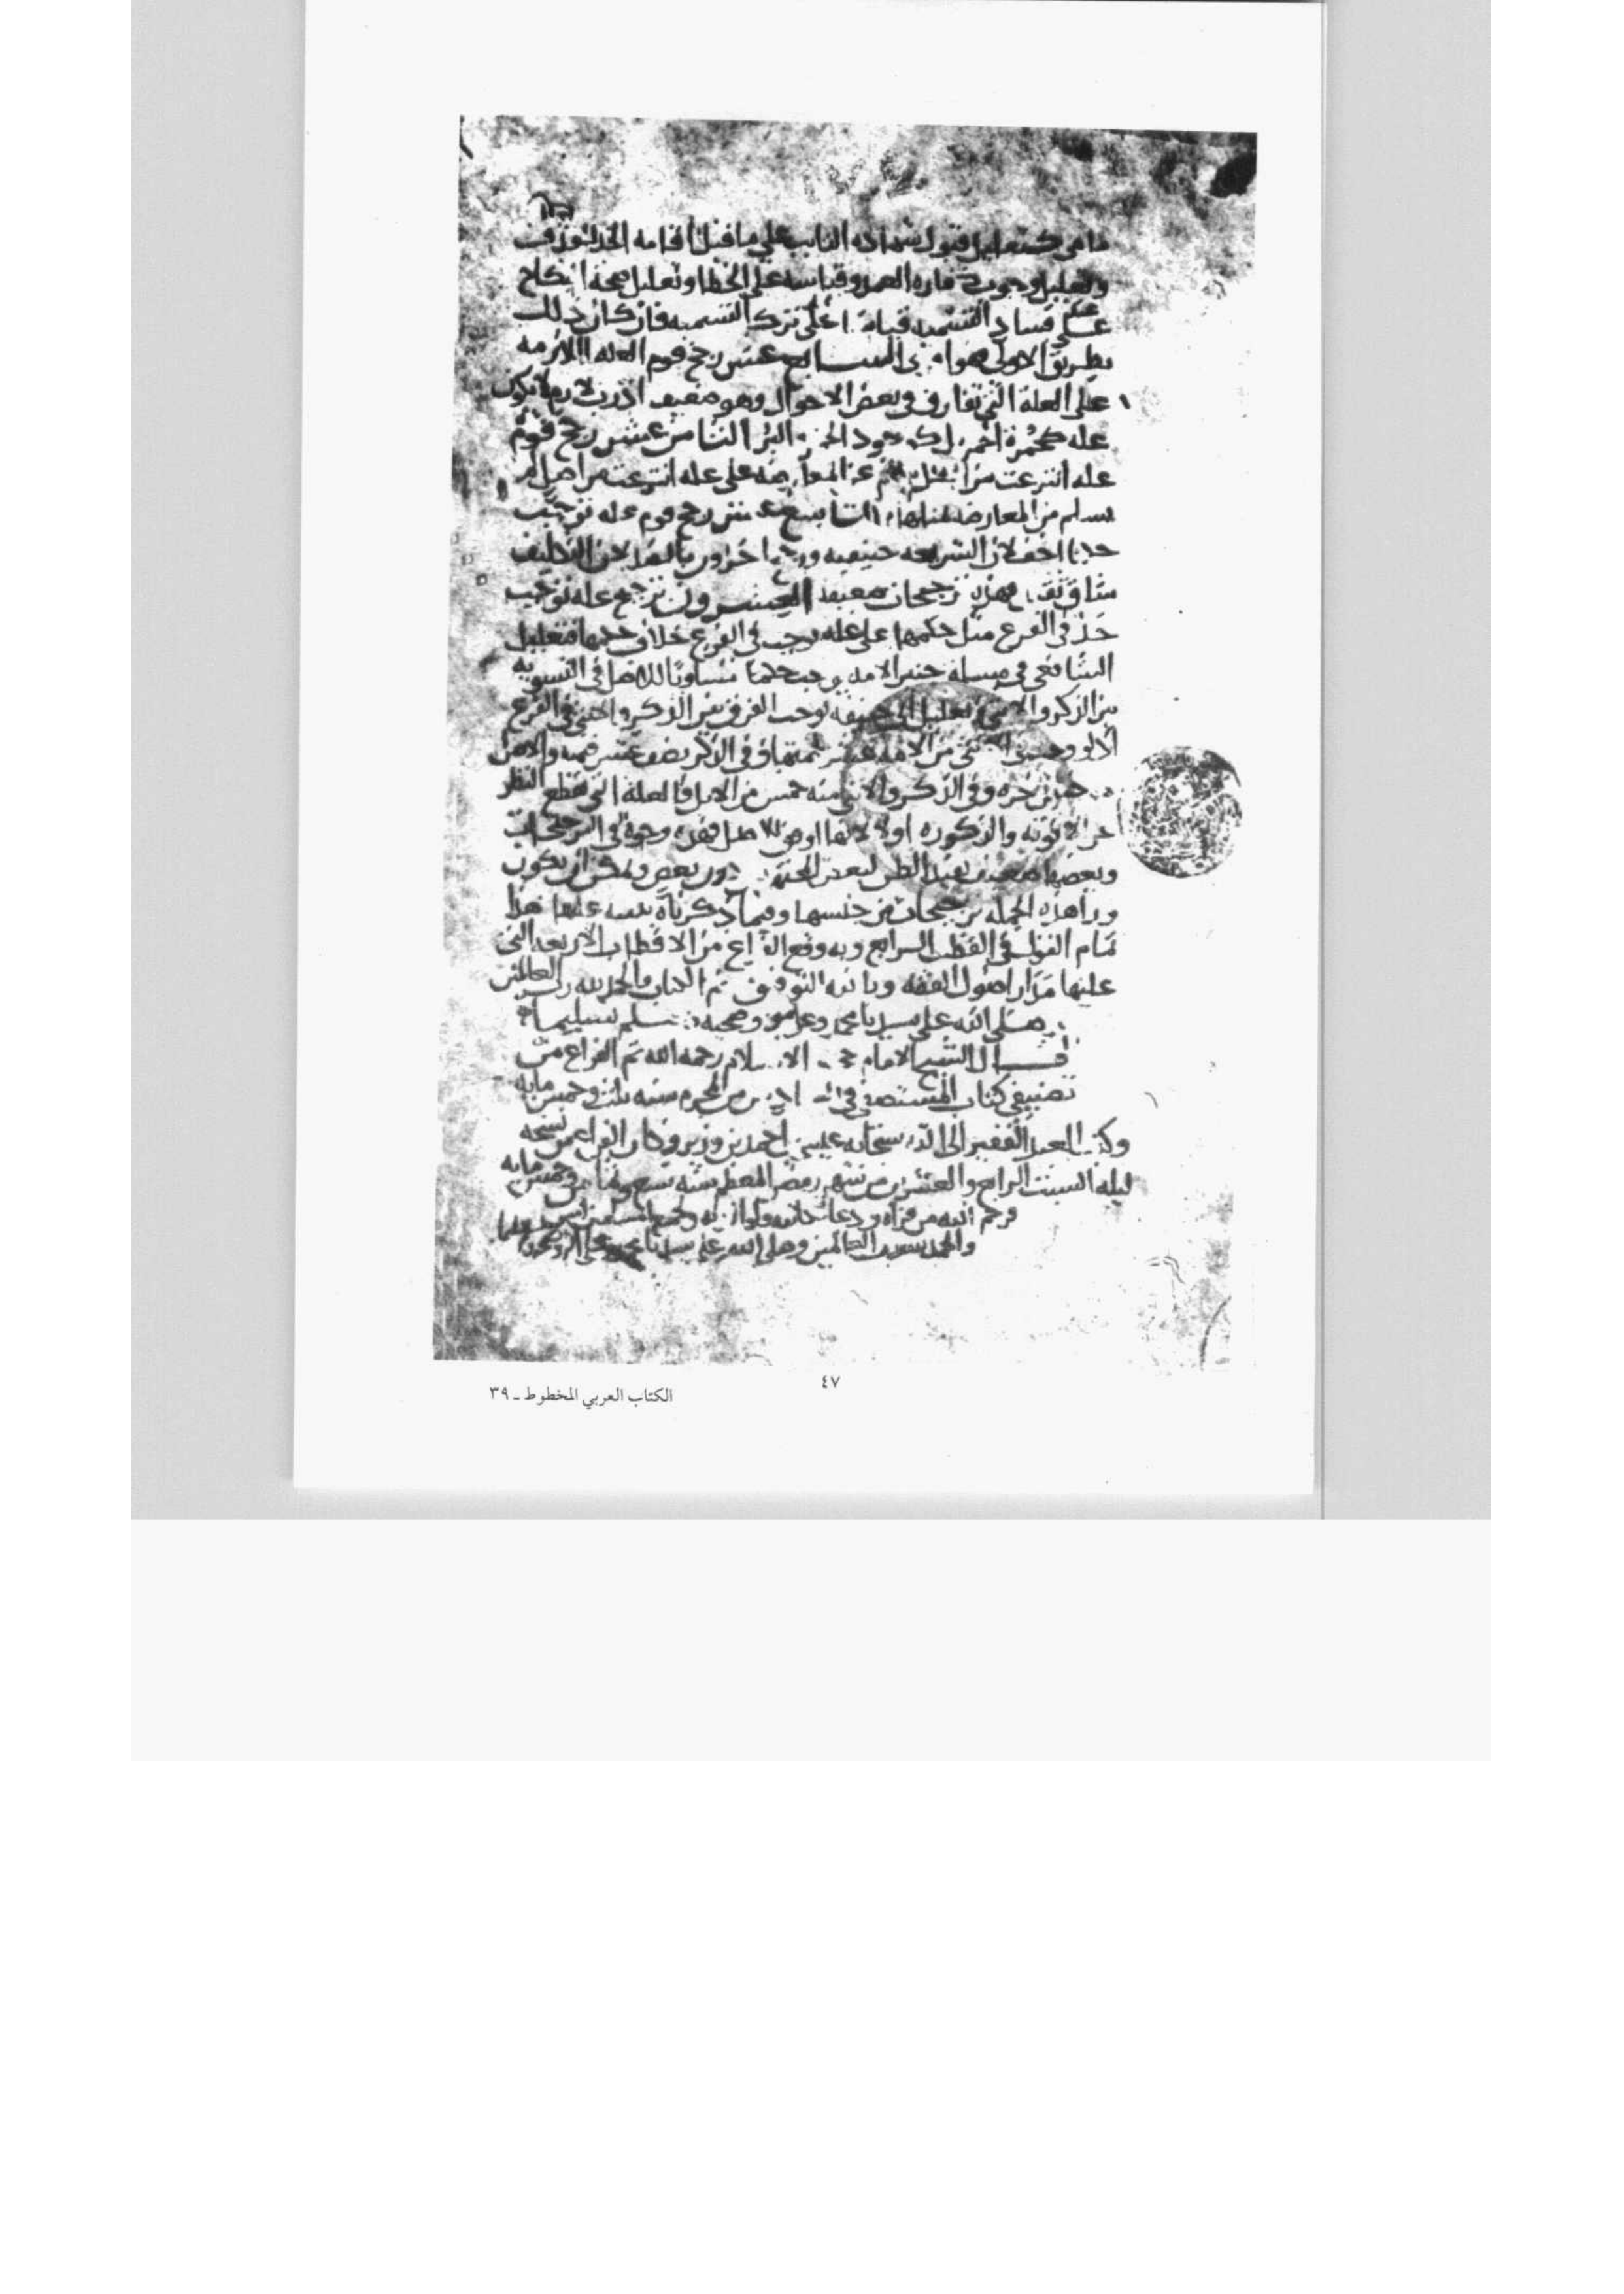 ما مر كتعليل قبول شهاده التايب على ما قبل اقامه الحد
وتعليل وجوب كفاره العمد وقياسه على الخطا وتعليل صحه النكاح
على فساد التسميه قياسا على ترك التسميه فان كان ذلك
بطريق الاولى فهو اقوى السابع عشر رجح قوم العله اللازمه
على العلة التي تفارق في بعض الاحوال وهو ضعيف اذ رب لازم لا يكون
عله كحمرة الخمر البر الثامن عشر رجح قوم
عله انتزعت من اصل سلم عن المعارضه على عله انتزعت من اصل لم
يسلم من المعارضه التاسع عشر رجح قوم عله توجب
حكما اخف لان الشريعه حنيفيه ورجح اخرون بالضد لان التكليف
شاق ثقيل فهذه ترجيحات ضعيفه العشرون ترجيح عله توجب
في الفرع مثل حكمها على عله توجب في الفرع خلاف حكمها فتعليل
الشافعي في مسله جنين الامه يوجب حكما مساويا للاصل في التسويه
بين الذكر والانثى وتعليل ابي حنيفه يوجب الفرق بين الذكر والانثى في الفرع
اذ اوجب في الانثى من الامه عشر قيمتها وفي الذكر نصف عشر قيمته والاصل
جنين الحره وفي الذكر والانثى منه خمس من الابل فالعلة التي تقطع النظر
عن الانوثه والذكوره اولى لانها اوفق للاصل فهذه وجوه في الترجيحات
وبعضها ضعيف يفيد الظن لبعض المجتهدين دون بعض ويمكن ان يكون
ورا هذه الجمله ترجيحات من جنسها وفيما ذكرناه تنبيه عليها هذا
تمام القول في القطب الرابع وبه وقع الفراغ من الاقطاب الاربعه التي
عليها مدار اصول الفقه وبالله التوفيق تم الكتاب والحمد لله رب العالمين
وصلى الله على سيدنا محمد وعلى اله وصحبه وسلم تسليما
قال الشيخ الامام حجه الاسلام رحمه الله تم الفراغ من
تصنيف كتاب المستصفى في من المحرم سنه ثلث وخمس مايه
وكتب العبد الفقير الى الله سبحانه احمد بن وزير وكان الفراغ من نسخه
ليله السبت الرابع والعشرين من شهر رمضن المعظم سنه تسع وخمس مايه
فرحم الله من قراه ودعا لكاتبه ولوالديه ولجميع المسلمين
والحمد لله رب العالمين وصلى الله على سيدنا محمد
٤٧
الكتاب العربي المخطوط ـ ٣٩